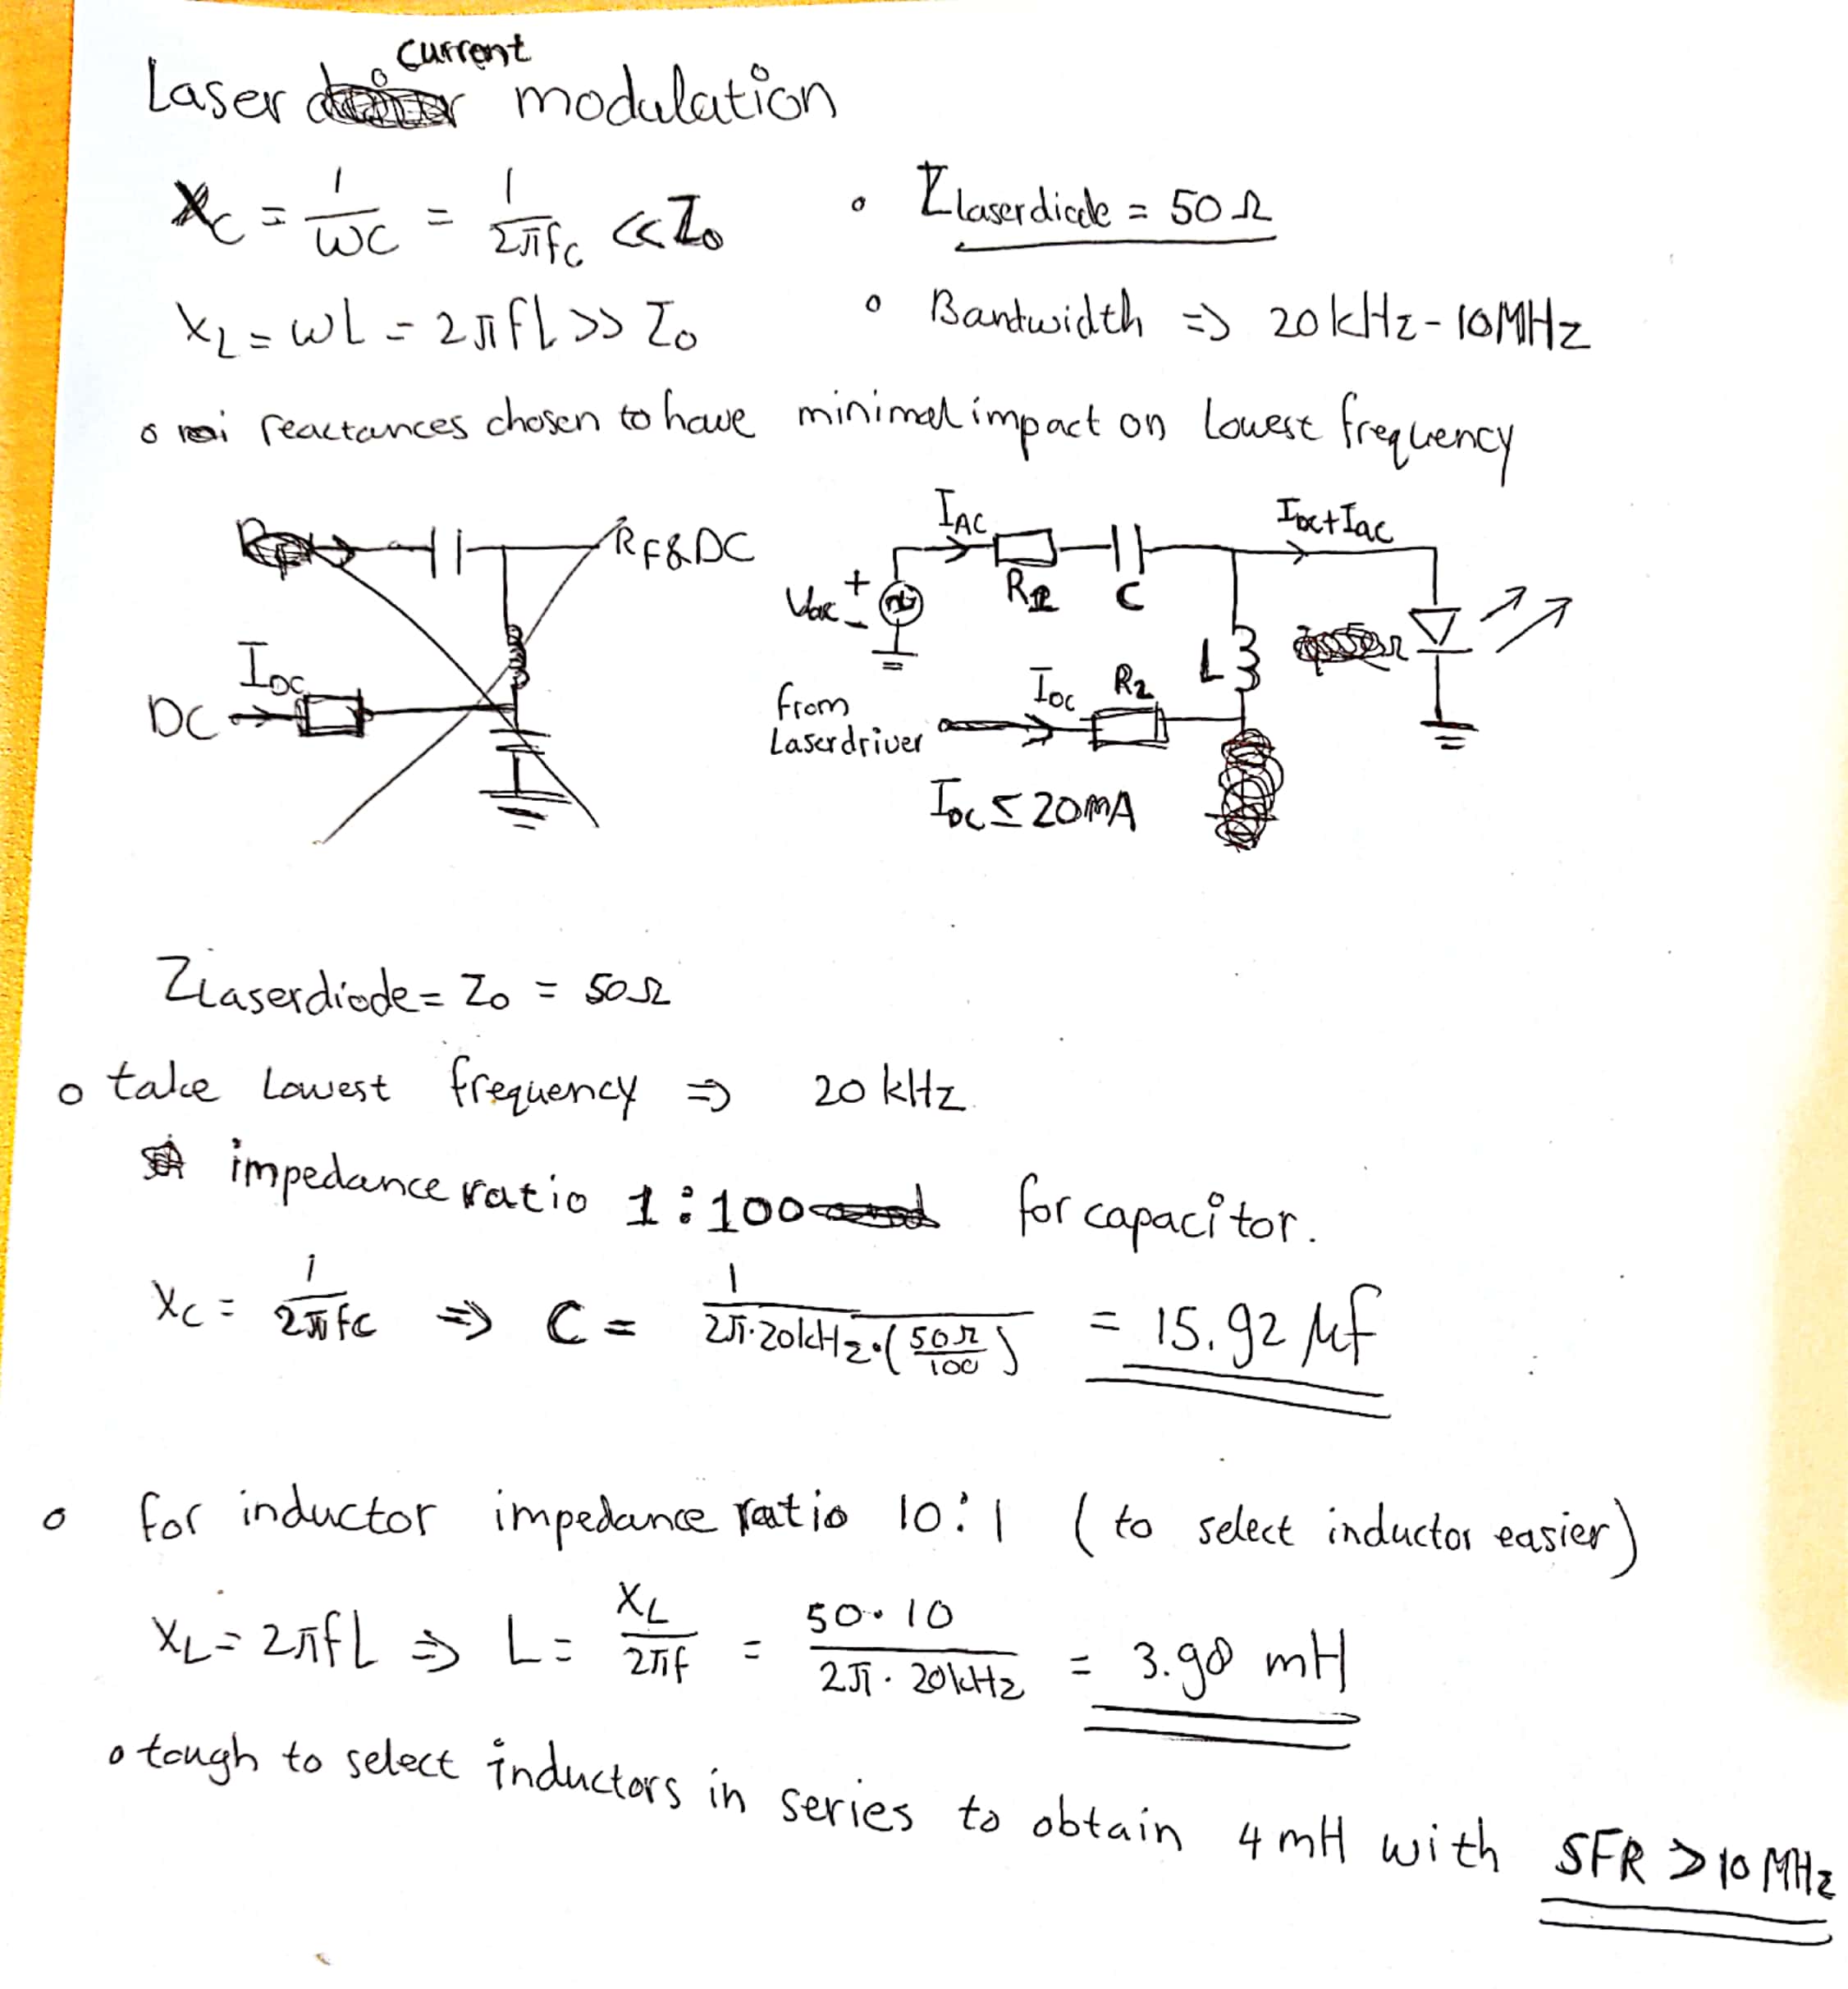 current
Laser modulation
Xc = 1/ωC = 1/2πfc << Zo
∘ Zlaserdiode = 50Ω
XL = ωL = 2πfL >> Zo
∘ Bantwidth => 20kHz-10MHz
∘ reactances chosen to have minimal impact on lowest frequency
RF&DC
IDC
DC
IAC
IDC+Iac
Vac + -
R1
C
L
from
Laserdriver
IDC
R2
IDC ≤ 20mA
Zlaserdiode = Zo = 50Ω
∘ take Lowest frequency => 20 kHz
impedance ratio 1:100 for capacitor.
Xc = 1/2πfc => C = 1/2π·20kHz·(50Ω/100) = 15.92 μf
∘ for inductor impedance ratio 10:1 (to select inductor easier)
XL = 2πfL => L = XL/2πf = 50·10/2π·20kHz = 3.98 mH
∘ tough to select inductors in series to obtain 4mH with SFR > 10 MHz